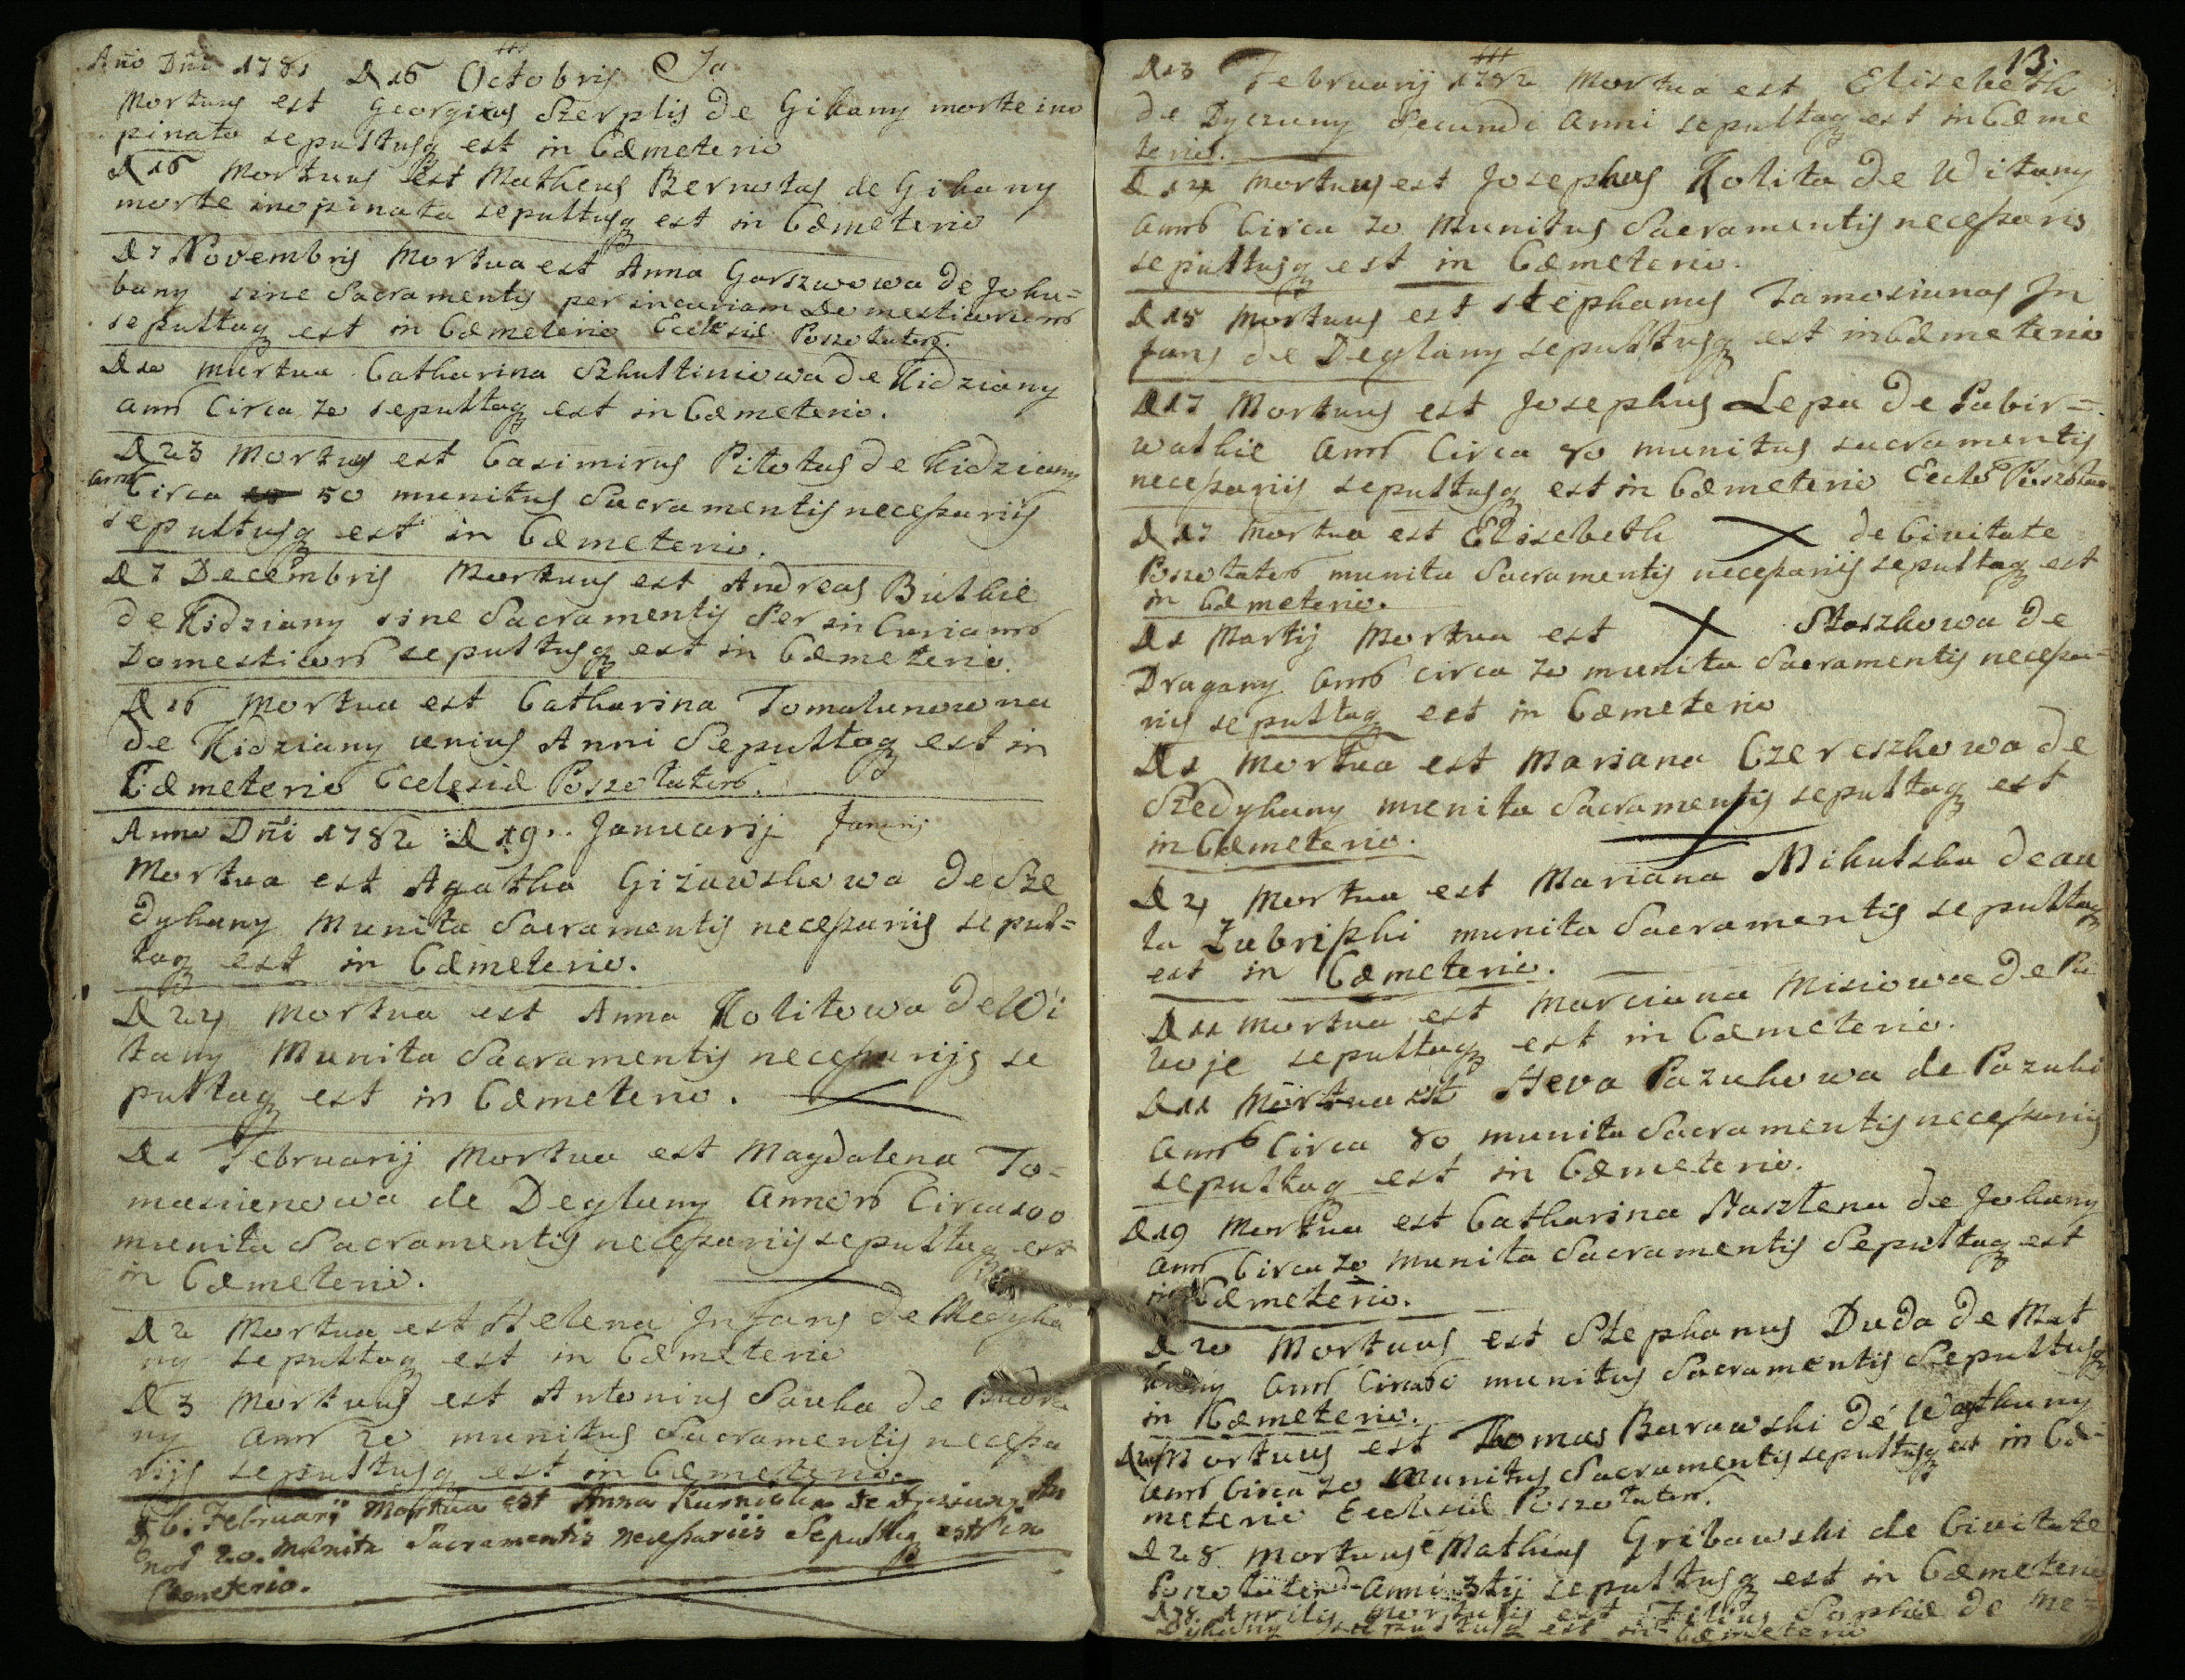 Año Dñi 1781 D 16 Octobris Ja
Mortuus est Georgius Szerplis de Gikany morte ino
pinata sepultusq est in Cæmeterio
D 16 Mortuus est Matheus Bernotas de Gikany
morte inopinata sepultusq est in Cæmeterio
D 7 Novembris Mortua est Anna Gorszwowa de Joku=
bany sine Sacramentis per incuriam Domesticorum
sepultaq est in Cæmeterio Ecclesiæ Poszolaten.
D 10 mortua Catharina Szkultiniowa de Kidziany
ann Circa 70 sepultaq est in Cæmeterio.
D 23 Mortuus est Casimirus Pilotas de Kidziany
ann Circa 50 munitus Sacramentis necessariis
sepultusq est in Cæmeterio.
D 7 Decembris Mortuus est Andreas Butkie
de Kidziany sine Sacramentis Per in Curiam
Domesticor sepultusq est in Cæmeterio.
D 16 Mortua est Catharina Tomalunowna
de Kidziany unius Anni Sepultaq est in
Cæmeterio Ecclesiæ Poszolaten.
Anno Dñi 1782 D 19. Januarij
Mortua est Agatha Giżawskowa de Sze
dykany Munita Sacramentis necessariis sepul=
taq est in Cæmeterio.
D 24 Mortua est Anna Kolitowa de Wi
tany Munita Sacramentis necessarijs se
pultaq est in Cæmeterio.
D 1 Februarij Mortua est Magdalena To=
masiunowa de Deglany Annor Circa 100
munita Sacramentis necessarijs sepultaq est
in Cæmeterio.
D 2 Mortua est Helena Infans de Medyka
ny sepultaq est in Cæmeterio
D 3 Mortuus est Antonius Sauka de
ny ann 20 munitus Sacramentis necessa
rijs sepultusq est in Cæmeterio.
D 6. Februarij Mortua est Anna de An
nor 20. Munita Sacramentis Necessariis Sepultaq est in
Cæmeterio.
13.
D 13 Februarij 1782 Mortua est Elisebeth
de Dyczuny Secundi Anni sepultaq est in Cæme
terio.
D 14 Mortuus est Josephus Kolita de Witany
ann Circa 70 Munitus Sacramentis necessaris
sepultusq est in Cæmeterio.
D 15 Mortuus est Stephanus Tamosiunas In
fans de Deglany sepultusq est in Cæmeterio
D 17 Mortuus est Josephus Lepa de Pabir=
watkie ann Circa 80 munitus sacramentis
necessariis sepultusq est in Cæmeterio Eccle Poszolaten
D 17 Mortua est Elisebeth de Civitate
Poszolaten munita Sacramentis necessariis sepultaq est
in Cæmeterio.
D 1 Martij Mortua est Staszkowa de
Dragany ann circa 70 munita Sacramentis necessa=
riis sepultaq est in Cæmeterio
D 1 Mortua est Mariana Czereszkowa de
Szedykany munita Sacramentis sepultaq est
in Cæmeterio.
D 4 Mortua est Mariana Mikutska de au
la Zubriszki munita Sacramentis sepultaq
est in Cæmeterio.
D 11 Mortua est Marciana Misiowa de Pu
woje sepultaq est in Cæmeterio.
D 11 Mortua est Heva Pazukowa de Pazuki
ann Circa 80 munita Sacramentis necessariis
sepultaq est in Cæmeterio.
D 19 Mortua est Catharina Naszlena de Jokany
ann Circa 70 munita Sacramentis Sepultaq est
in Cæmeterio.
D 20 Mortuus est Stephanus Duda de Mat
kany ann Circa munitus Sacramentis Sepultusq
in Cæmeterio.
Mortuus est Thomas Barawski de Wojtkuny
ann Circa 70 Munitus Sacramentis sepultusq est in Cæ=
meterio Ecclesiæ Poszolaten.
D 28 Mortuus e Mathias Gribowski de Civitate
Poszolaten Anni 3tij sepultusq est in Cæmeterio
D 8. Aprilis Mortuus est Filius Sophiæ de Me=
dykany sepultusq est in Cæmeterio